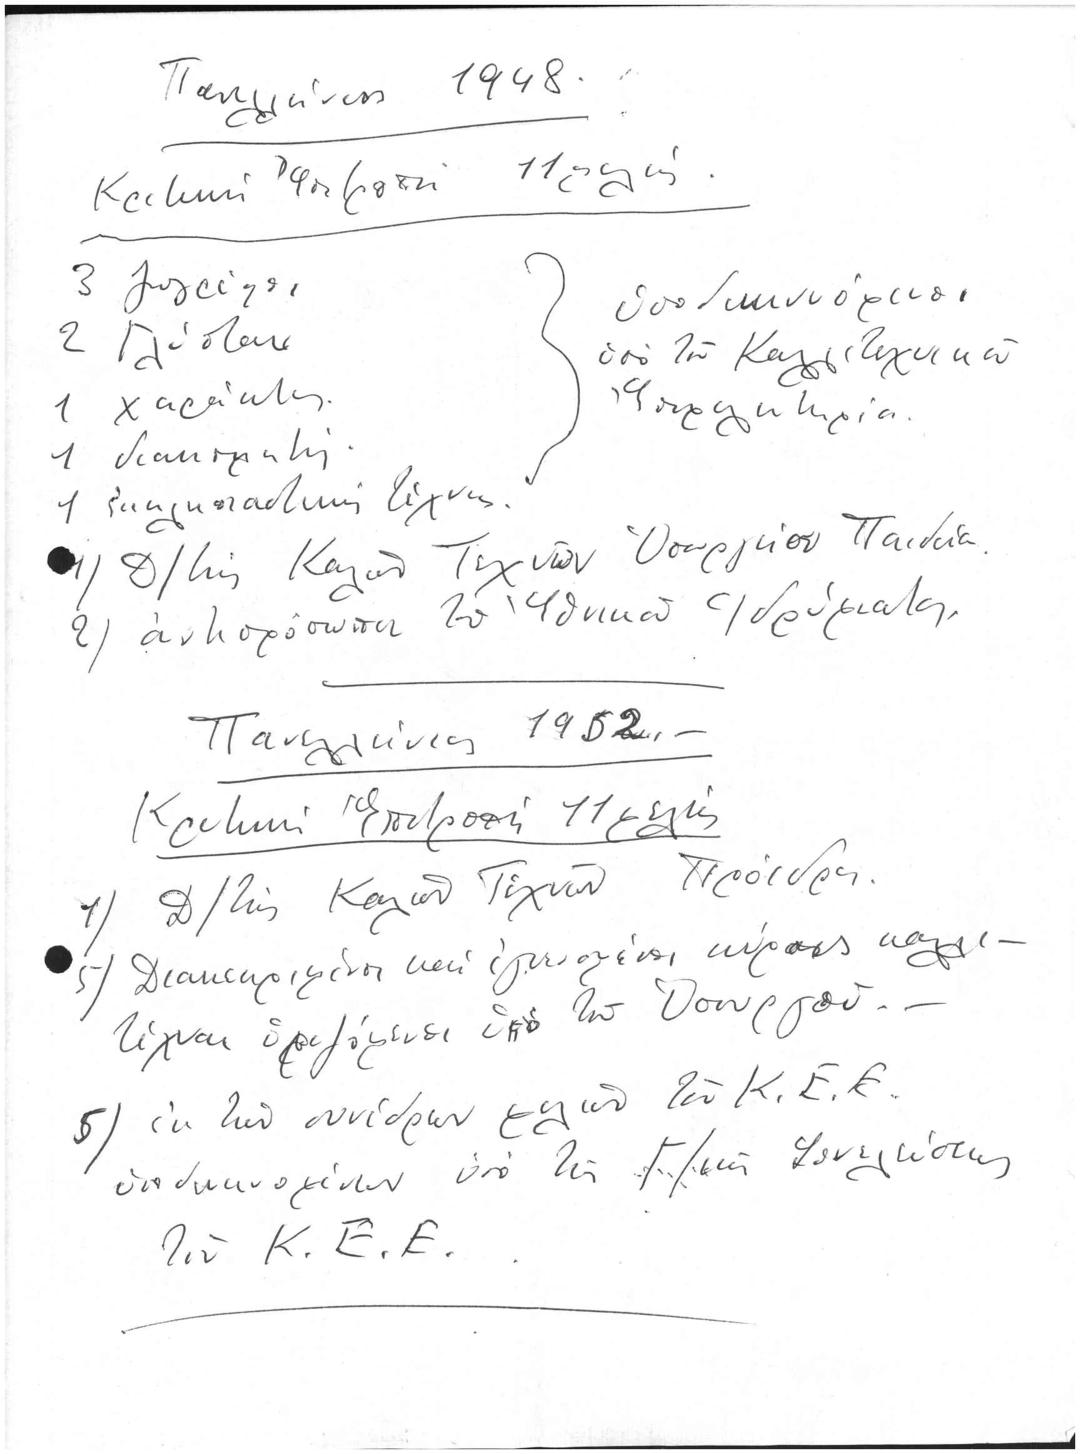 Πανελλήνιος 1948.
Κριτική Ἐπιτροπή 11μελής.
3 ζωγράφοι
2 Γλύπται
1 χαράκτης.
1 διακοσμητής.
1 ἐκκλησιαστικής τέχνης.
ὑποδεικνυόμενοι
ὑπό τοῦ Καλλιτεχνικοῦ
Ἐπιμελητηρίου.
1) Δ/τής Καλῶν Τεχνῶν Ὑπουργείου Παιδείας.
2) ἀντιπρόσωποι τοῦ Ἐθνικοῦ Ἱδρύματος.
Πανελλήνιος 1952.—
Κριτική Ἐπιτροπή 11μελής
1) Δ/τής Καλῶν Τεχνῶν Πρόεδρος.
5) Διακεκριμένοι καί ἐγνωσμένου κύρους καλλι—
τέχναι ὁριζόμενοι ὑπό τοῦ Ὑπουργοῦ.—
5) ἐκ τῶν συνέδρων μελῶν τοῦ Κ.Ε.Ε.
ὑποδεικνυομένων ὑπό τῆς Γ/κῆς Συνελεύσεως
τοῦ Κ.Ε.Ε.